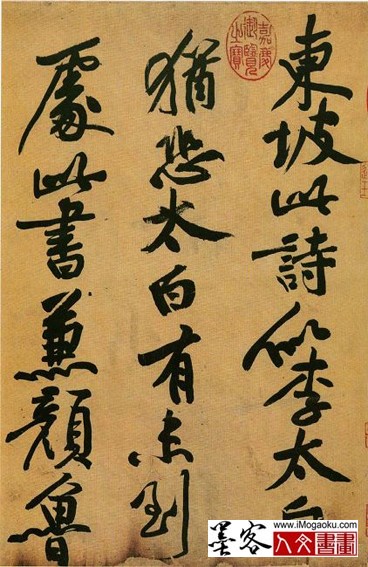 東坡此詩似李太白
猶恐太白有未到
處此書兼顏魯
嘉慶御覽之寶
墨客
www.iMogaoku.com
人文書畫